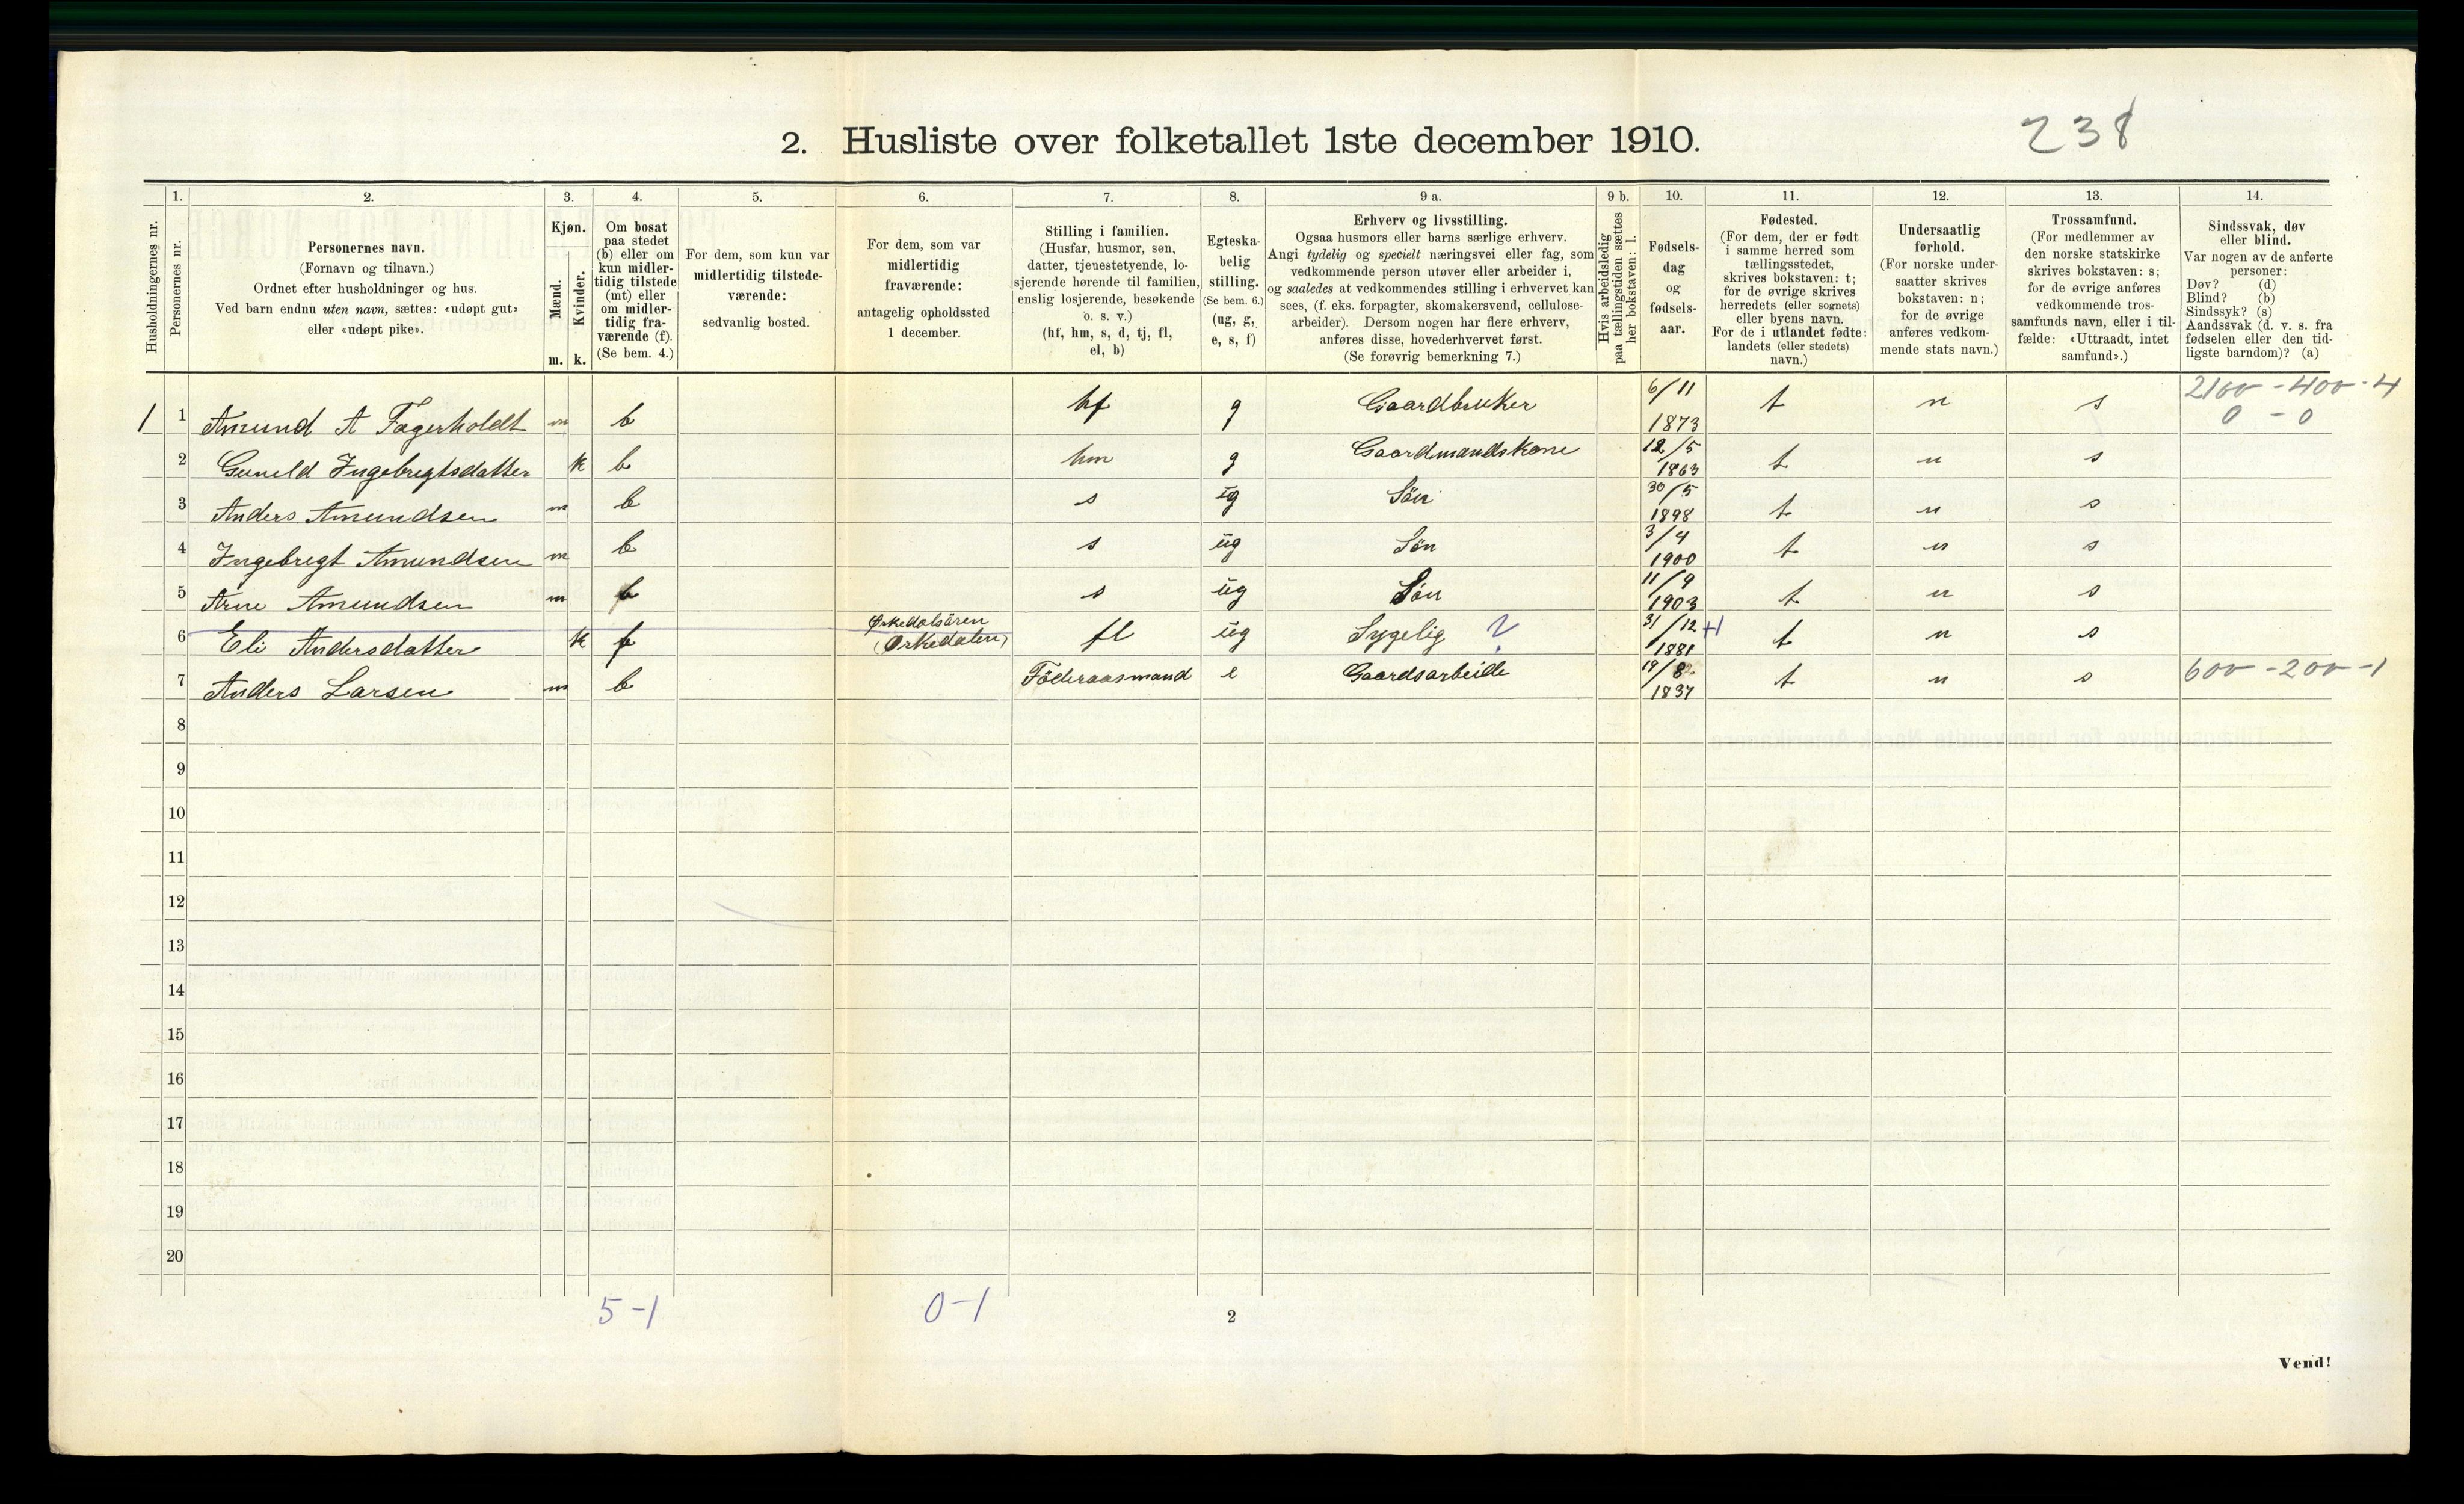 2. Husliste over folketallet 1ste december 1910.
238
Husholdningernes nr.
1. Personernes nr.
2. Personernes navn.
(Fornavn og tilnavn.)
Ordnet efter husholdninger og hus.
Ved barn endnu uten navn, sættes: «udøpt gut»
eller «udøpt pike».
3. Kjøn.
Mænd. m.
Kvinder. k.
4. Om bosat
paa stedet
(b) eller om
kun midler-
tidig tilstede
(mt) eller
om midler-
tidig fra-
værende (f).
(Se bem. 4.)
5. For dem, som kun var
midlertidig tilstede-
værende:
sedvanlig bosted.
6. For dem, som var
midlertidig
fraværende:
antagelig opholdssted
1 december.
7. Stilling i familien.
(Husfar, husmor, søn,
datter, tjenestetyende, lo-
sjerende hørende til familien,
enslig losjerende, besøkende
o. s. v.)
(hf, hm, s, d, tj, fl,
el, b)
8. Egteska-
belig
stilling.
(Se bem. 6.)
(ug, g,
e, s, f)
9 a. Erhverv og livsstilling.
Ogsaa husmors eller barns særlige erhverv.
Angi tydelig og specielt næringsvei eller fag, som
vedkommende person utøver eller arbeider i,
og saaledes at vedkommendes stilling i erhvervet kan
sees, (f. eks. forpagter, skomakersvend, cellulose-
arbeider). Dersom nogen har flere erhverv,
anføres disse, hovederhvervet først.
(Se forøvrig bemerkning 7.)
9 b. Hvis arbeidsledig
paa tællingstiden sættes
her bokstaven: l.
10. Fødsels-
dag
og
fødsels-
aar.
11. Fødested.
(For dem, der er født
i samme herred som
tællingsstedet,
skrives bokstaven: t;
for de øvrige skrives
herredets (eller sognets)
eller byens navn.
For de i utlandet fødte:
landets (eller stedets)
navn.)
12. Undersaatlig
forhold.
(For norske under-
saatter skrives
bokstaven: n;
for de øvrige
anføres vedkom-
mende stats navn.)
13. Trossamfund.
(For medlemmer av
den norske statskirke
skrives bokstaven: s;
for de øvrige anføres
vedkommende tros-
samfunds navn, eller i til-
fælde: «Uttraadt, intet
samfund».)
14. Sindssvak, døv
eller blind.
Var nogen av de anførte
personer:
Døv? (d)
Blind? (b)
Sindssyk? (s)
Aandssvak (d. v. s. fra
fødselen eller den tid-
ligste barndom)? (a)
1 1 Amund A Fagerholdt m b hf g Gaardbruker 6/11 1873 t n s 2100 - 400 - 4
0 - 0
2 Guneld Ingebregtsdatter k b hm g Gaardmandskone 12/5 1863 t n s
3 Anders Amundsen m b s ug Sön 30/5 1898 t n s
4 Ingebregt Amundsen m b s ug Sön 3/4 1900 t n s
5 Arne Amundsen m b s ug Sön 11/9 1903 t n s
6 Eli Andersdatter k f Ørkedalsören (Orkedalen) fl ug Sygelig ? 31/12 1881 t n s
7 Anders Larsen m b Föderaasmand e Gaardsarbeide 19/8 1837 t n s 600 - 200 - 1
8
9
10
11
12
13
14
15
16
17
18
19
20
5 - 1 0 - 1
2
Vend!